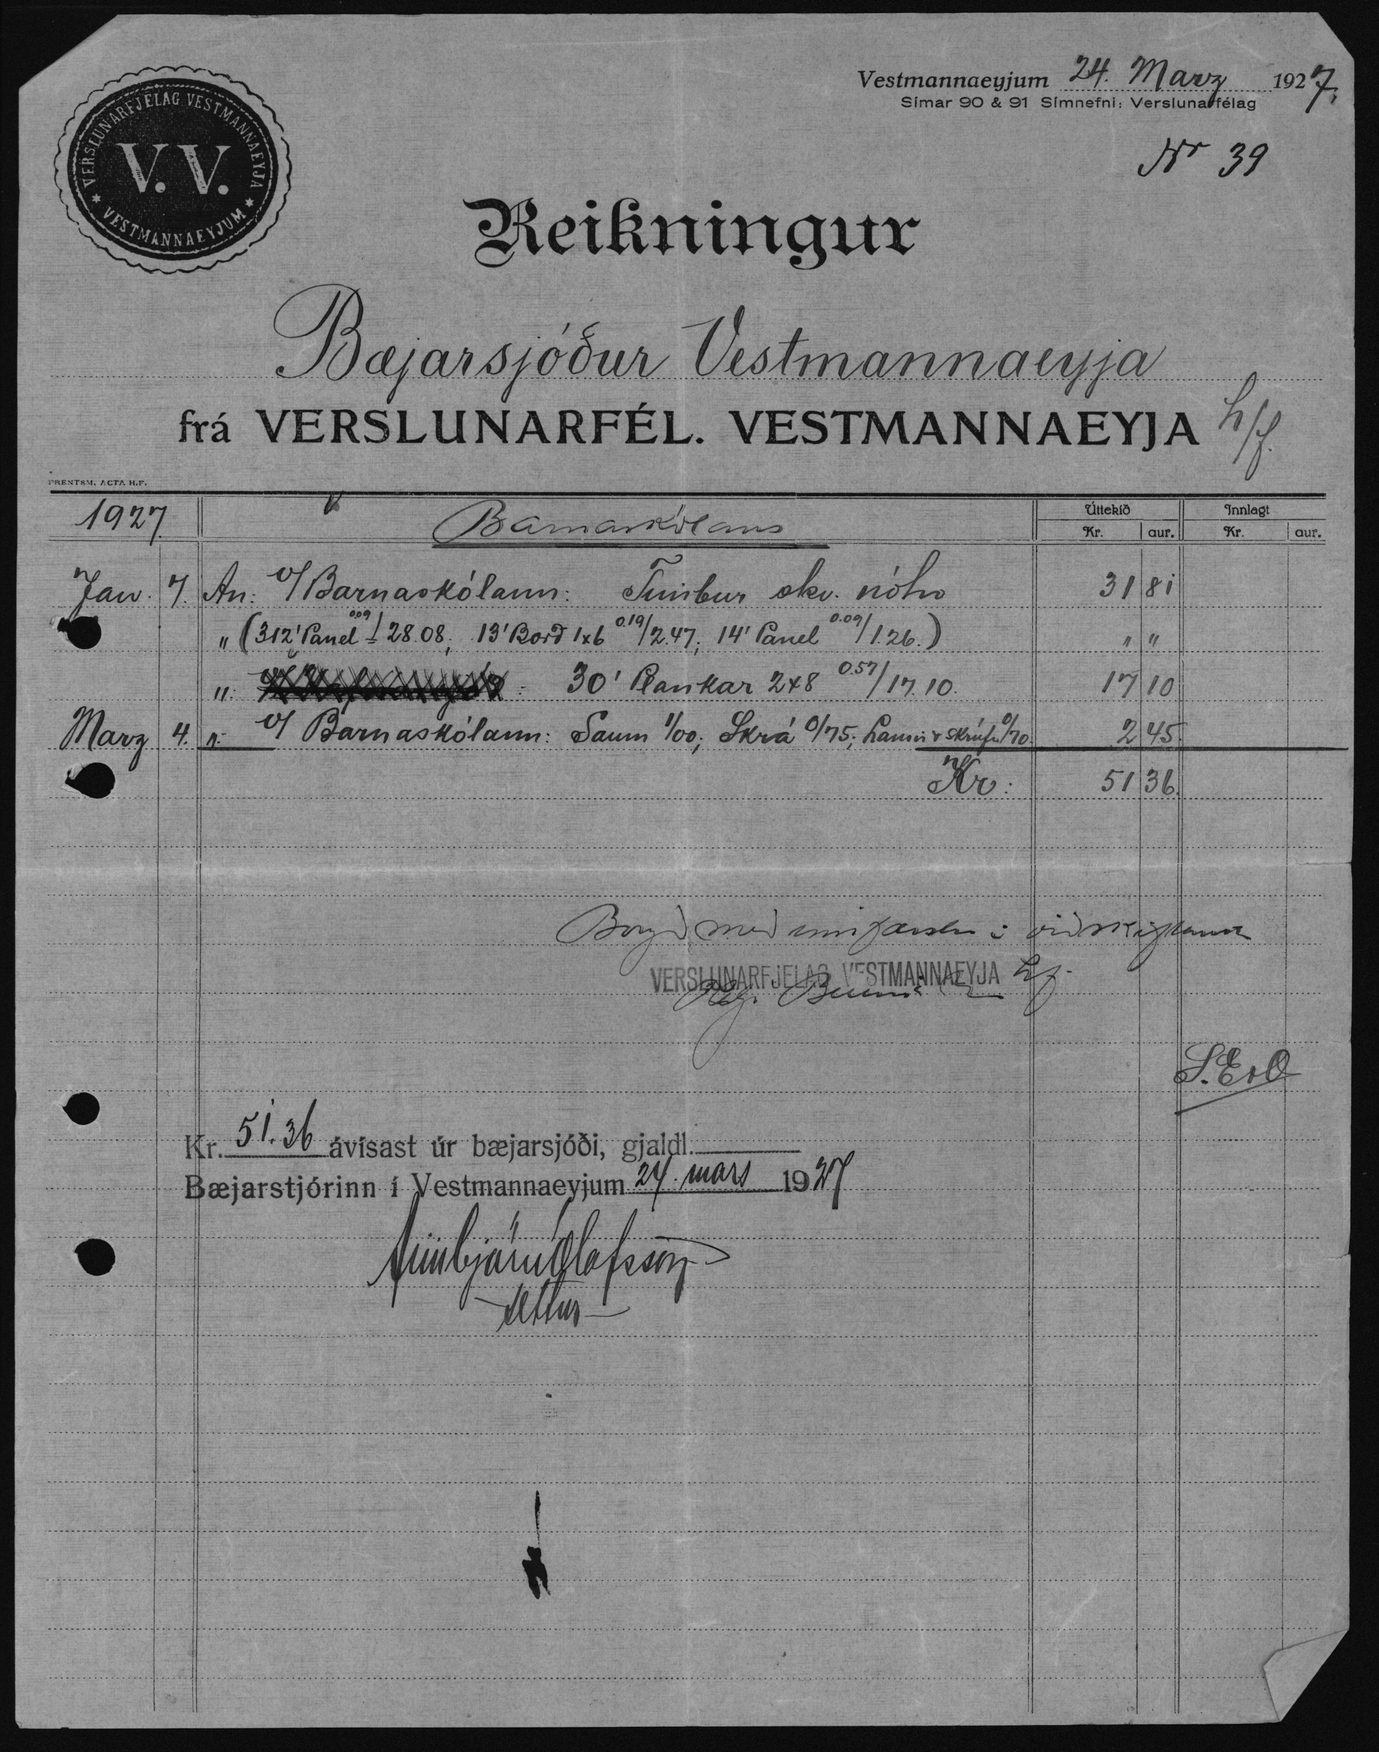 VERSLUNARFJELAG VESTMANNAEYJA
V. V.
★ VESTMANNAEYJUM ★
Vestmannaeyjum 24. Marz 1927.
Símar 90 & 91 Símnefni: Verslunarfélag
Nr 39
Reikningur
Bæjarsjóður Vestmannaeyja
frá VERSLUNARFÉL. VESTMANNAEYJA h/f.
PRENTSM. ACTA H.F.
1927. Barnaskólans Úttekið Innlagt
Kr. aur. Kr. aur.
Jan. 7. An: v/ Barnaskólann: Timbur skv. nótu 31 81
" (312' Panel 0.09/28.08; 13' Borð 1x6 0.19/2.47; 14' Panel 0.09/1.26.) " "
": 30' Plankar 2x8 0.57/17.10. 17 10
Marz 4. ": v/ Barnaskólann: Saum 1/00; Skrá 0/75; Lamir & Skrúfur 0/70. 2 45
Kr: 51 36.
Borgað með í viðskiftum
VERSLUNARFJELAG VESTMANNAEYJA h/f.
S. E & O
Kr. 51.36 ávísast úr bæjarsjóði, gjaldl.
Bæjarstjórinn í Vestmannaeyjum 24. mars 1927
Sinnbjörn Ólafsson
settur